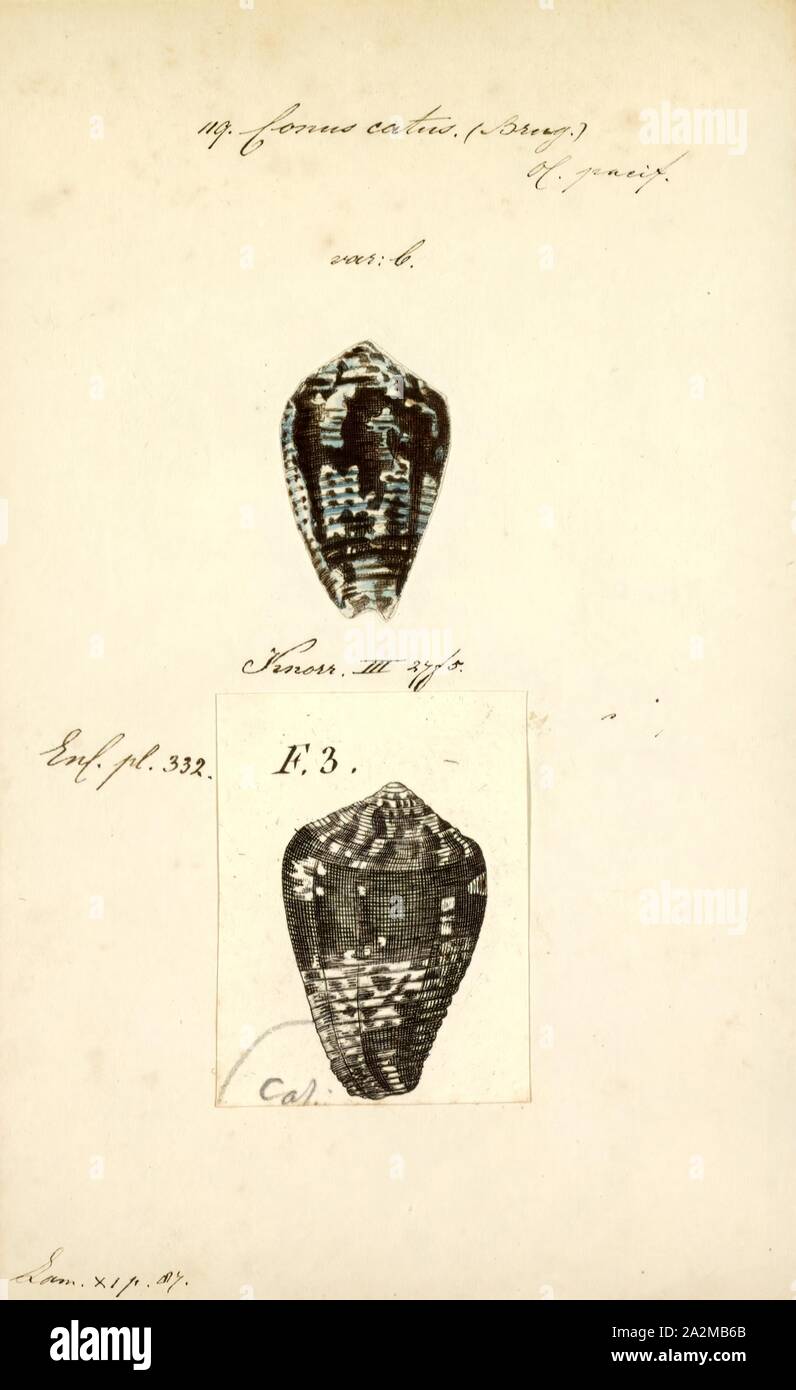 119. Conus catus. (Brug.)
O. pacif.
var: b.
Knorr. III 27 f 5.
Enl. pl. 332.
F. 3.
Cat.
Lam. XI p. 87.
alamy
Image ID: 2A2MB6B
www.alamy.com